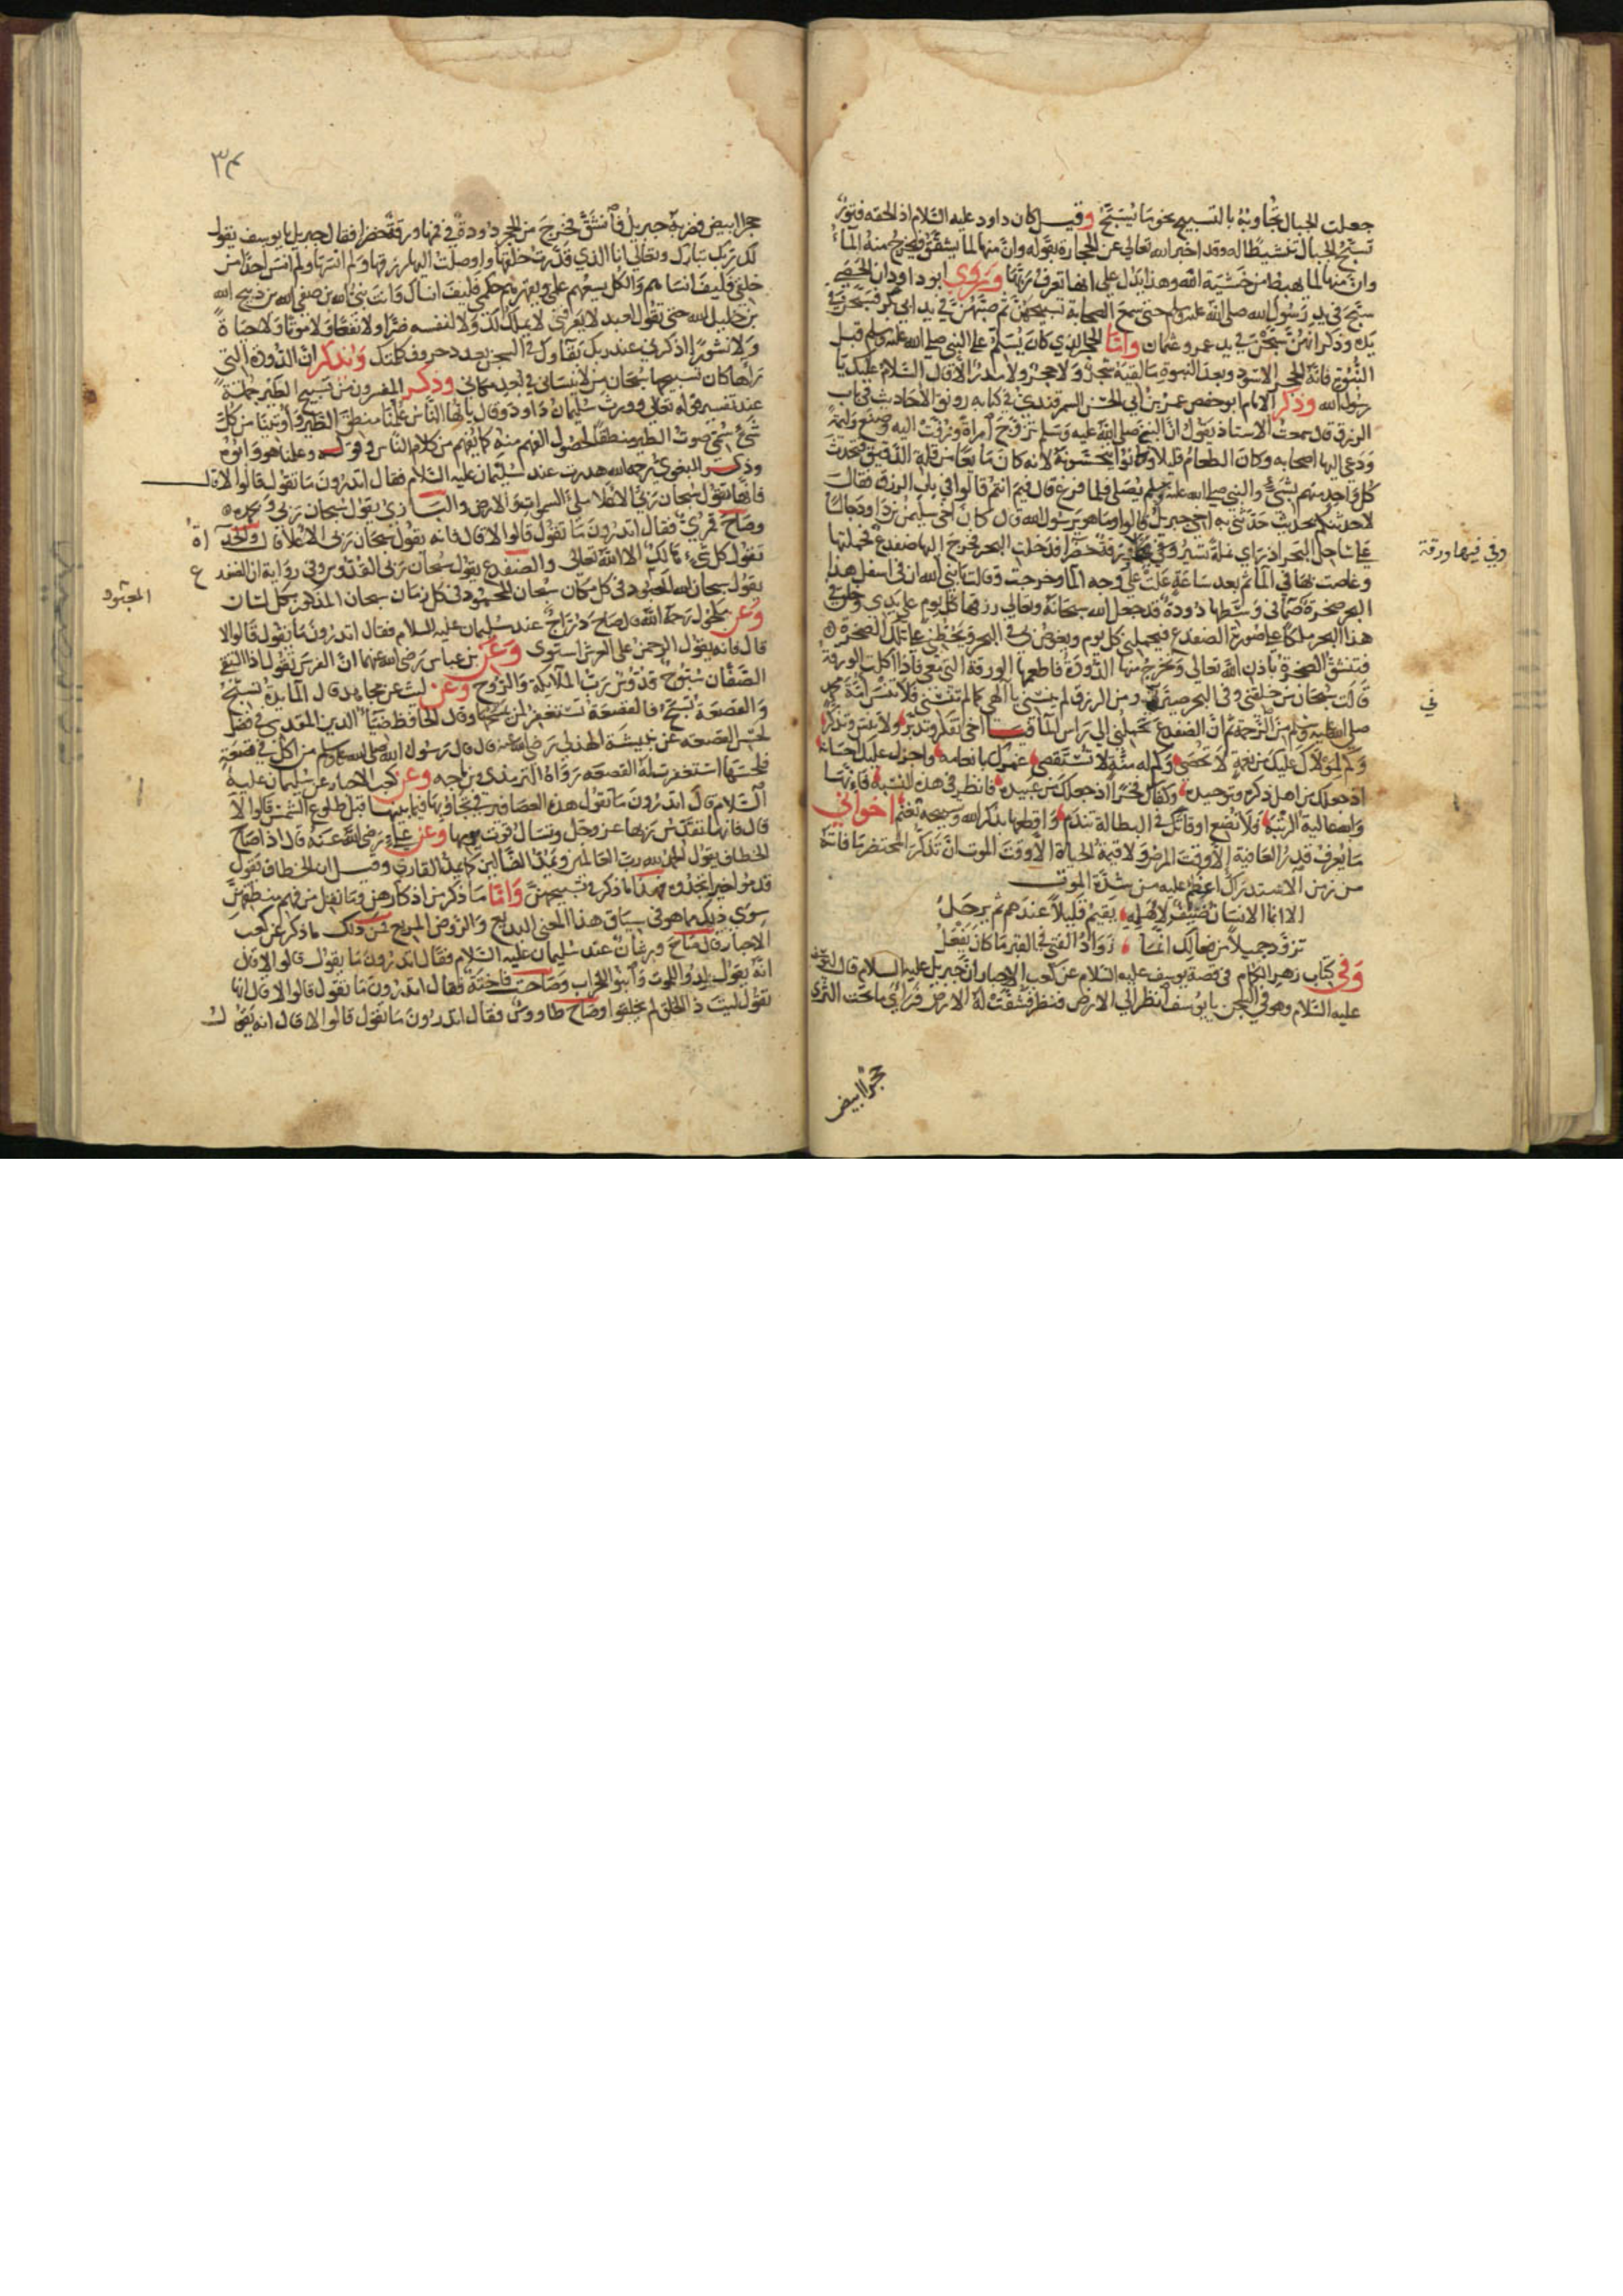 جعلت الجبال تجاوبه بالتسبيح نحو ما يسبح وقيل كان داود عليه السلام اذا لحقه فتور
تسبح الجبال تنشيطا له وقد اخبر الله تعالى عن الحجارة بقوله وان منها لما يشقق فيخرج منه الماء
وان منها لما يهبط من خشية الله وهذا يدل على انها تعرف ربها ويروى ابو داود ان الحصى
سبح في يد رسول الله صلى الله عليه وسلم حتى سمع الصحابة تسبيحهن ثم صبهن في يد ابي بكر فسبحن في
يده وذكر انهن سبحن في يد عمر وعثمان واما الحجر الذي كان يسلم على النبي صلى الله عليه وسلم قبل
النبوة فانه الحجر الاسود وبعد النبوة ما لقيه شجر ولا حجر ولا مدر الا قال السلام عليك يا
رسول الله وذكر الامام ابو حفص عمر بن ابي الحسن السمرقندي في كتابه رونق الاحاديث في باب
الرزق قال سمعت الاستاذ يقول ان النبي صلى الله عليه وسلم تزوج امراة وزفت اليه وصنع وليمة
ودعى اليها اصحابه وكان الطعام قليلا وكانوا لانه كان ما بها من قلة الدقيق فتحدث
كل واحد منهم بشيء والنبي صلى الله عليه وسلم يصلى فلما فرغ قال فيم انتم قالوا في باب الرزق فقال
لاحدثنكم بحديث حدثني به اخي جبريل قالوا وما هو يرسول الله قال كان اخي سليمن بن داود جالسا
على ساحل البحر اذ راى نملة تسير وفي ورقة خضرا فدخلت البحر فخرج اليها ضفدع فحملتها
وغاصت بها في الما ثم بعد ساعة علت على وجه الما وخرجت وقالت يا نبي الله ان في اسفل هذا
البحر صخرة صما في وسطها دودة قد جعل الله سبحانه وتعالى رزقها كل يوم على يدي وخلق في
هذا البحر ملكا على صورة الضفدع فيحملني كل يوم ويغوص بي في البحر ويحطني على تلك الصخرة
فتنشق الصخرة باذن الله تعالى وتخرج منها الدودة فاطعمها الورقة التي معي فاذا اكلت الورقة
قالت سبحان من خلقني وفي البحر صيرني ومن الرزق لم ينسني يا الهي كما لم تنسني فلا تنس امة محمد
صلى الله عليه وسلم من الرحمة ثم ان الضفدع تحملني الى راس الما اخي تفكر وتدبر ولا تنس وتذكر
وكم لمولاك عليك من نعم لا تحصى وكم له منة لا تستقصى غمرك بانعامه واجزل عليك احسانه
اذ جعلك من اهل ذكره وتوحيده وكفاك فخرا اذ جعلك من عبيده فانظر في هذه النسبة فانها
والله عالية الرتبة فلا تضع اوقاتك في البطالة تندم واقطعها بذكر الله وتسبيحه تغنم اخواني
ما يعرف قدر العافية الا وقت المرض ولا قيمة الحياة الا وقت الموت ان تذكر المحتضر ما فاته
من زمن الاستدراك اعظم عليه من شدة الموت
الا انما الانسان ضيف لاهله يقيم قليلا عندهم ثم يرحل
تزود جميلا من فعالك انما زواد الفتى في القبر ما كان يفعل
وفي كتاب زهر الكمام في قصة يوسف عليه السلام عن كعب الاحبار ان جبريل عليه السلام قال ليوسف
عليه السلام وهو في السجن يا يوسف انظر الى الارض فنظر فشقت له الارض فراى ما تحت الثرى
حجرا ابيض
وفي فيها ورقة
في
٣٤
حجرا ابيض فضربه جبريل فانشق فخرج من الحجر دودة في فمها ورقة خضرا فقال جبريل يا يوسف يقول
لك ربك تبارك وتعالى انا الذي قدرت خلقها واوصلت اليها رزقها ولم انسها ولم انس احدا من
خلقي فكيف انساهم والكل بيدهم علي وبعزتهم حكمي فكيف انساك وانت نبي الله بن صفي الله بن ذبيح الله
بن خليل الله حتى تقول لعبد لا يعرفني لا يملك لك ولا لنفسه ضرا ولا نفعا ولا موتا ولا حياة
ولا نشورا اذكرني عند ربك بقاؤك في السجن بعدد حروف كلمتك ونذكر ان الدودة التي
راها كان تسبيحها سبحان من لا ينساني في بعد مكاني وذكر المفسرون من تسبيح الطير جملة
عند تفسير قوله تعالى وورث سليمان داود وقال يا ايها الناس علمنا منطق الطير واوتينا من كل
شيء سمي صوت الطير منطقا لحصول الفهم منه كما يفهم من كلام الناس وقوله وعلمناه
وذكر البغوي رحمه الله هدرت عند سليمان عليه السلام فقال اتدرون ما تقول قالوا لا قال
فانها تقول سبحان ربي الاعلا ملئ السموات والارض والبازي يقول سبحان ربي وبحمده
وصاح قمري فقال اتدرون ما تقول قالوا لا قال فانه يقول سبحان ربي الاعلا قال والحداة
تقول كل شيء هالك الا الله تعالى والضفدع يقول سبحان ربي القدوس وفي رواية ان الضفدع
يقول سبحان الله المعبود في كل مكان سبحان المحمود في كل زمان سبحان المذكور بكل لسان
وعن مكحول رحمه الله قال صاح دراج عند سليمان عليه السلام فقال اتدرون ما يقول قالوا لا
قال فانه يقول الرحمن على العرش استوى وعن بن عباس رضي الله عنهما ان الفرس تقول اذا التقى
الصفان سبوح قدوس رب الملائكة والروح وعن ليث عن مجاهد قال المايدة تسبح
والقصعة تسبح فالقصعة تستغفر لمن لحسها وقال الحافظ ضياء الدين المقدسي في فضل
لحس القصعة عن نبيشة الهذلي رضي الله عنه قال قال رسول الله صلى الله عليه وسلم من اكل في قصعة
فلحسها استغفرت له القصعة رواه الترمذي بن ماجه وعن كعب الاحبار عن سليمان عليه
السلام قال اتدرون ما تقول هذه العصافير في تجاوبها فيما بينها قبل طلوع الشمس قالوا لا
قال فانها تقدس ربها عز وجل وتسال قوت يومها وعن علي رضي الله عنه قال اذا صاح
الخطاف يقول الحمد لله رب العالمين ويمد الضالين كما يمد القاري وقيل ان الخطاف تقول
قدموا خيرا تجدوه فهذا ما ذكر في تسبيحهن واما ما ذكر من اذكارهن وما نقل من فهم منطقهن
سوى ذلك مما هو في سياق هذا المعنى البديع والروض المريع فمن ذلك ما ذكر عن كعب
الاحبار قال صاح ورشان عند سليمان عليه السلام فقال اتدرون ما يقول قالوا لا قال
انه يقول لدوا للموت وابنوا للخراب وصاحت فاختة فقال اتدرون ما تقول قالوا لا قال انها
تقول ليت ذا الخلق لم يخلقوا وصاح طاووس فقال اتدرون ما يقول قالوا لا قال انه يقول
المعبود